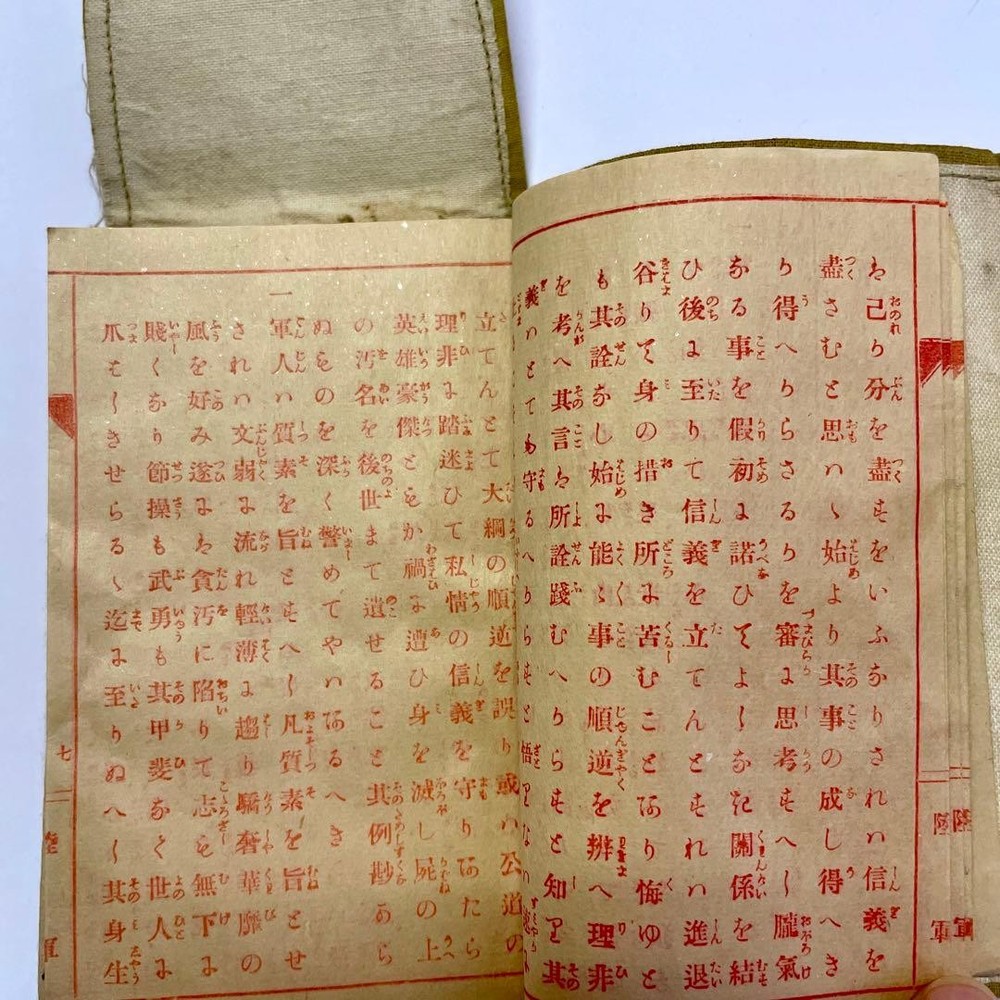 は己か分を盡すをいふなりされは信義を
盡さむと思はゝ始より其事の成し得へき
か得へからさるかを審に思考すへし朧氣
なる事を假初に諾ひてよしなき關係を結
ひ後に至りて信義を立てんとすれは進退
谷りて身の措き所に苦むことあり悔ゆと
も其詮なし始に能々事の順逆を辨へ理非
を考へ其言は所詮踐むへからすと知り其
義はとても守るへからすと悟り
立てんとて大綱の順逆を誤り或は公道の
理非に踏迷ひて私情の信義を守りあたら
英雄豪傑ともか禍に遭ひ身を滅し屍の上
の汚名を後世まて遺せること其例尠から
ぬものを深く警めてやはあるへき
一軍人は質素を旨とすへし凡質素を旨とせ
されは文弱に流れ輕薄に趨り驕奢華靡の
風を好み遂には貪汚に陷りて志も無下に
賤くなり節操も武勇も其甲斐なく世人に
爪はしきせらるゝ迄に至りぬへし其身生
七
陸軍
陸軍
陸軍